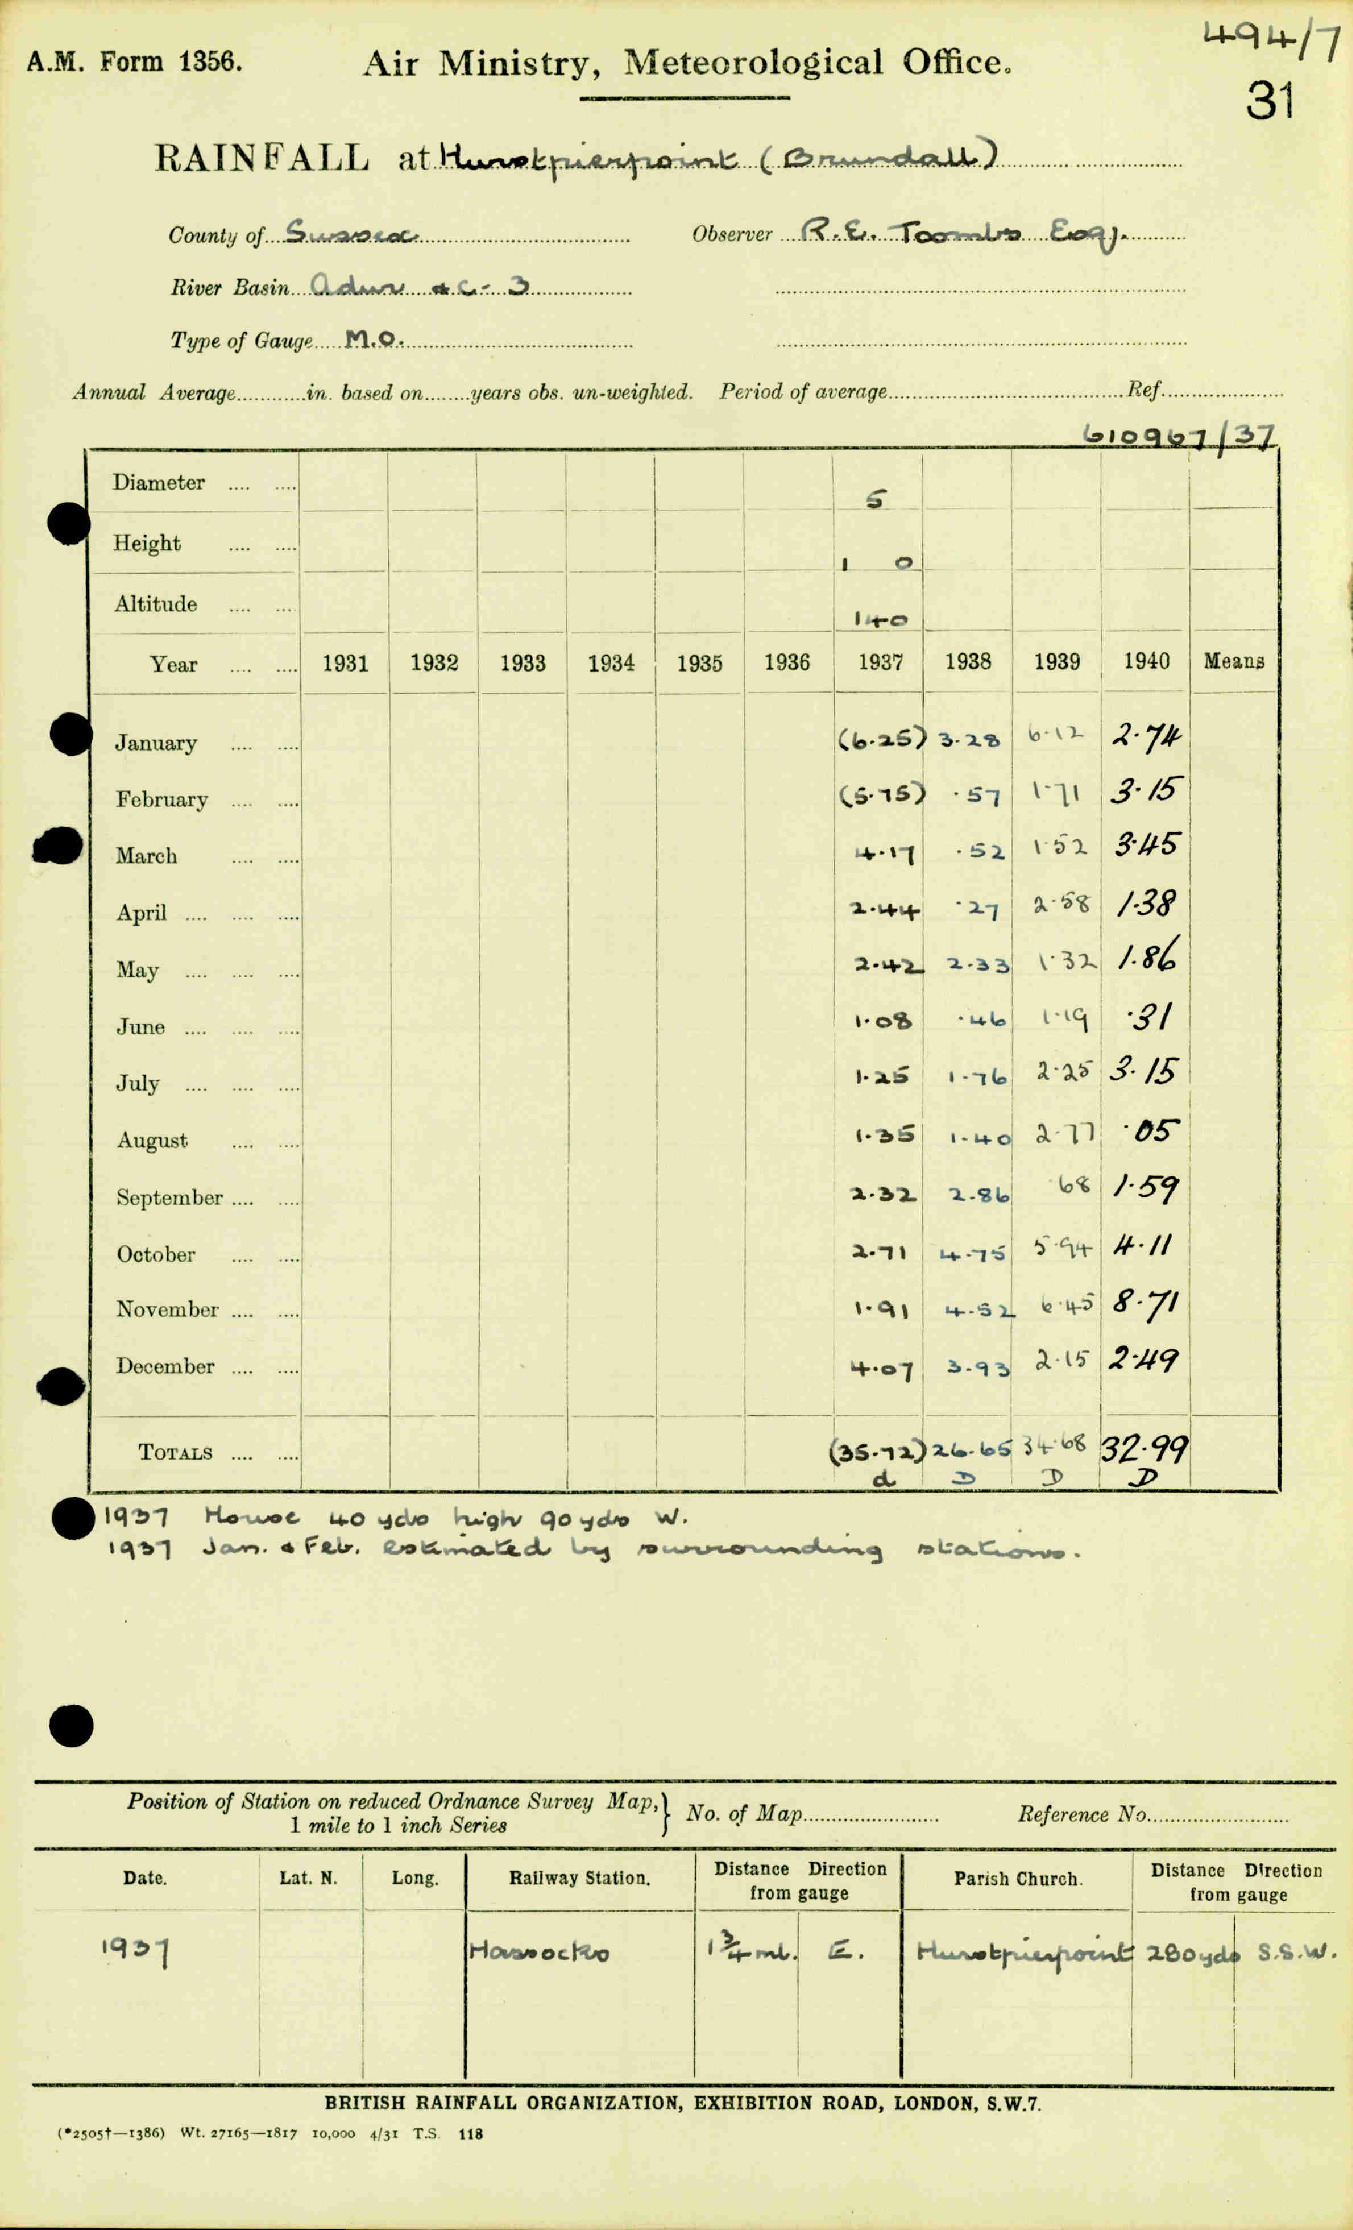 494/7
A.M. Form 1356. Air Ministry, Meteorological Office.
31
RAINFALL at Hurstpierpoint (Brundall)
County of Sussex Observer R.E. Toombs Esq.
River Basin Adur &c - 3
Type of Gauge M.O.
Annual Average in. based on years obs. un-weighted. Period of average Ref.
610967/37
Diameter .... .... 5
Height .... .... 1 0
Altitude .... .... 140
Year .... .... 1931 1932 1933 1934 1935 1936 1937 1938 1939 1940 Means
January .... .... (6.25) 3.28 6.12 2.74
February .... .... (5.75) .57 1.71 3.15
March .... .... 4.17 .52 1.52 3.45
April .... .... .... 2.44 .27 2.58 1.38
May .... .... .... 2.42 2.33 1.32 1.86
June .... .... .... 1.08 .46 1.19 .31
July .... .... .... 1.25 1.76 2.25 3.15
August .... .... 1.35 1.40 2.77 .05
September .... .... 2.32 2.86 68 1.59
October .... .... 2.71 4.75 5.94 4.11
November .... .... 1.91 4.52 6.45 8.71
December .... .... 4.07 3.93 2.15 2.49
TOTALS .... .... (35.72) 26.65 34.68 32.99
d D D D
1937 House 40 yds high 90 yds W.
1937 Jan. & Feb. estimated by surrounding stations.
Position of Station on reduced Ordnance Survey Map,} No. of Map Reference No.
1 mile to 1 inch Series
Date. Lat. N. Long. Railway Station. Distance Direction from gauge Parish Church. Distance Direction from gauge
1937 Hassocks 1 3/4 ml. E. Hurstpierpoint 280 yds S.S.W.
BRITISH RAINFALL ORGANIZATION, EXHIBITION ROAD, LONDON, S.W.7.
(*2505†—1386) Wt. 27165—1817 10,000 4/31 T.S. 118